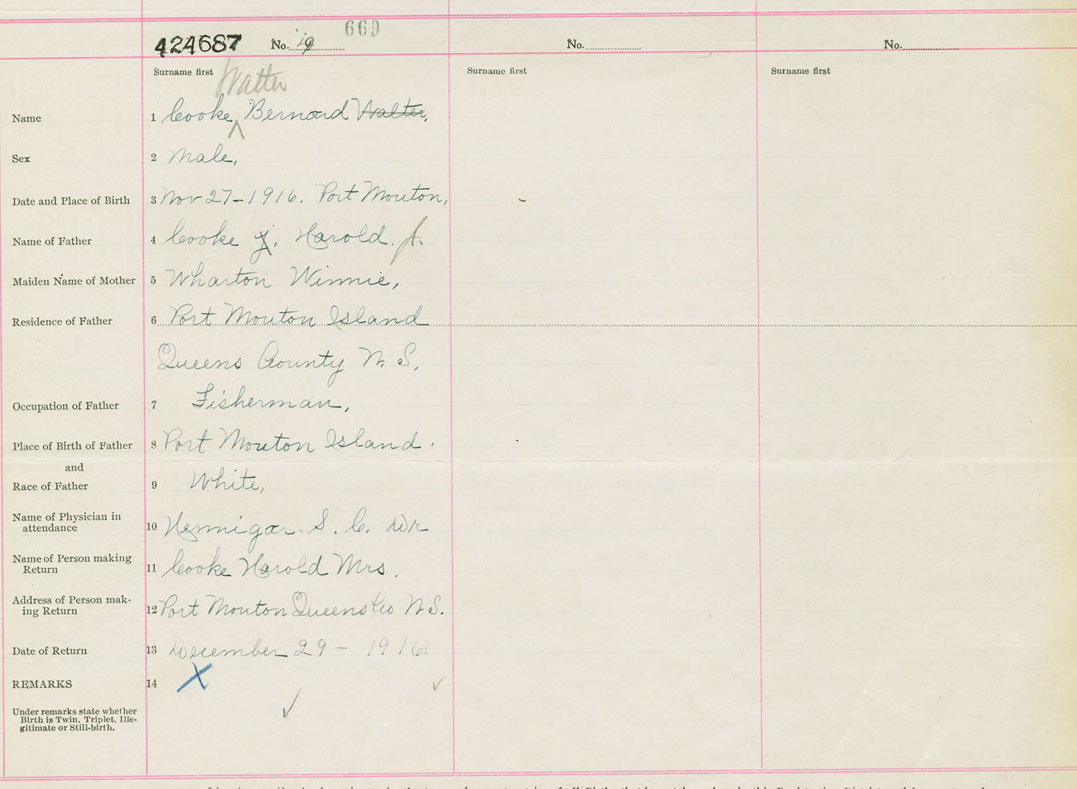 669
424687 No. 19 No. No.
Surname first Surname first Surname first
Walter
Name 1 Cooke, ^ Bernard Walter,
Sex 2 Male,
Date and Place of Birth 3 Nov 27-1916. Port Mouton,
Name of Father 4 Cooke J. Harold. J.
Maiden Name of Mother 5 Wharton Winnie,
Residence of Father 6 Port Mouton Island
Queens County N. S.
Occupation of Father 7 Fisherman,
Place of Birth of Father 8 Port Mouton Island.
and
Race of Father 9 White,
Name of Physician in
attendance 10 Hennigar S. C. Dr
Name of Person making
Return 11 Cooke Harold Mrs.
Address of Person mak-
ing Return 12 Port Mouton Queens Co N.S.
Date of Return 13 December 29 - 1916.
REMARKS 14 X
Under remarks state whether
Birth is Twin, Triplet, Ille-
gitimate or Still-birth.